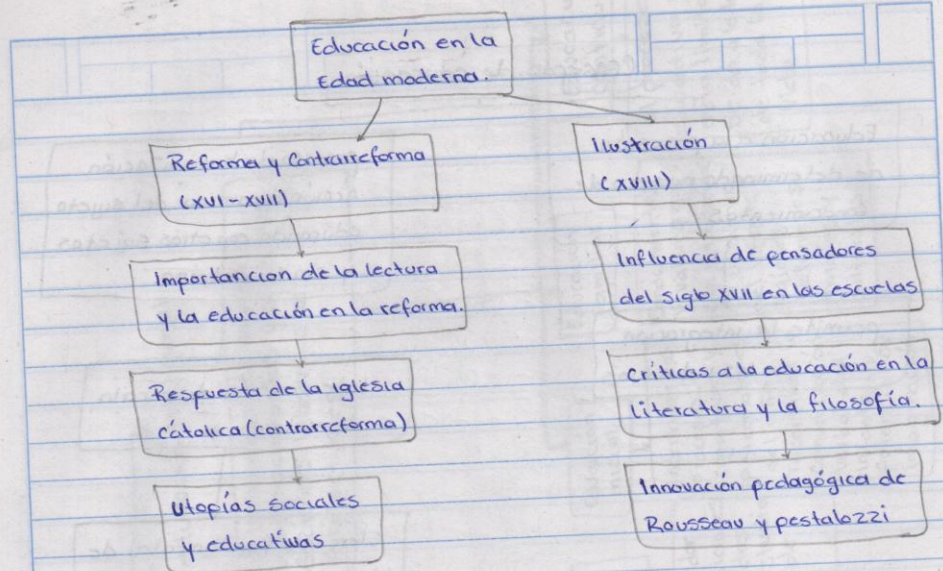 Educación en la
Edad moderna.
Reforma y Contrarreforma
(XVI-XVII)
Importancion de la lectura
y la educación en la reforma.
Respuesta de la iglesia
cátolica (contrarreforma)
Utopías sociales
y educativas
Ilustración
(XVIII)
Influencia de pensadores
del siglo XVII en las escuelas
críticas a la educación en la
literatura y la filosofía.
Innovación pedagógica de
Rousseau y pestalozzi